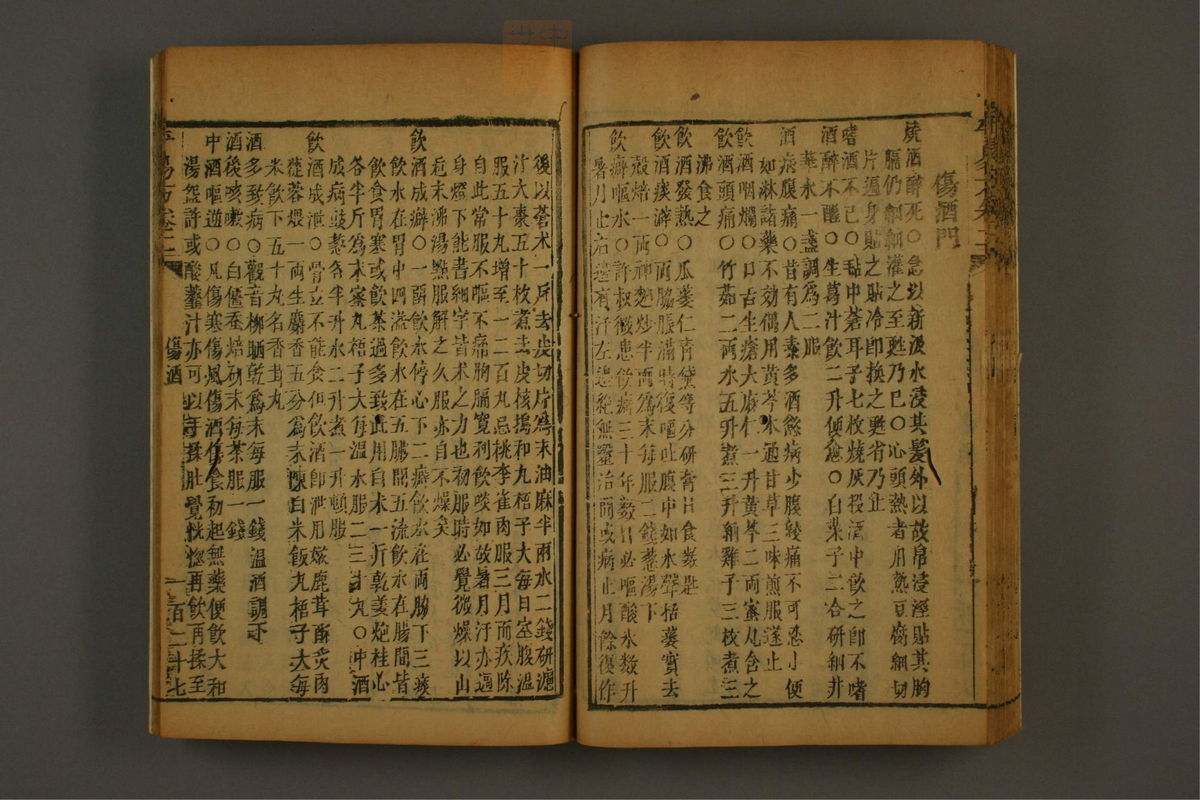 傷酒門
燒酒醉死○急以新汲水浸其髮外以故帛浸溼貼其胸
膈仍細細灌之至甦乃已○心頭熱者用熱豆腐細切
片遍身貼之貼冷卽換之甦省乃止
嗜酒不已○毡中蒼耳子七枚燒灰投酒中飲之卽不嗜
酒醉不醒○生葛汁飲二升便愈○白菜子二合研細井
華水一盞調爲二服
酒病腹痛○昔有人素多酒慾病少腹絞痛不可忍小便
如淋諸藥不効偶用黃芩木通甘草三味煎服遂止
飲酒咽爛○口舌生瘡大麻仁一升黃芩二兩蜜丸含之
飲酒頭痛○竹茹二兩水五升煮三升納雞子三枚煮三
沸食之
飲酒發熱○瓜蔞仁青黛等分研膏日食數匙
飲酒痰澼○兩脇脹滿時復嘔吐腹中如水聲栝蔞實去
殼焙一兩神麴炒半兩爲末每服二錢葱湯下
飲癖嘔水○許叔微患飲癖三十年數日必嘔酸水數升
暑月止右邊有汗左邊絕無醫治間或病止月餘復作
後以蒼术一斤去皮切片爲末油麻半兩水二錢研濾
汁大棗五十枚煮去皮核搗和丸梧子大每日空腹溫
服五十丸增至一二百丸忌桃李雀肉服三月而疾除
自此常服不嘔不痛胸膈寬利飲啖如故暑月汗亦遍
身燈下能書細字皆术之力也初服時必覺微燥以山
梔末沸湯點服解之久服亦自不燥矣
飲酒成癖○一曰飲水停心下二癖飲水在兩脇下三痰
飲水在胃中四溢飲水在五臟間五流飲水在腸間皆
飲食胃寒或飲茶過多致此用白术一斤乾姜炮桂心
各半斤爲末蜜丸梧子大每溫水服二三十丸○冲酒
成病豉葱各半升水二升煮一升頓服
飲酒成泄○骨立不能食但飲酒卽泄用嫰鹿茸酥炙肉
蓯蓉煨一兩生麝香五分爲末陳白米飯丸梧子大每
米飲下五十丸名香茸丸
酒多致病○觀音柳晒乾爲末每服一錢溫酒調下
酒後咳嗽○白僵蚕焙研末每茶服一錢
中酒嘔逆○凡傷寒傷風傷酒傷食初起無藥便飲大和
湯盌許或酸虀汁亦可以手揉肚覺恍惚再飲再揉至
傷酒
一百二十七